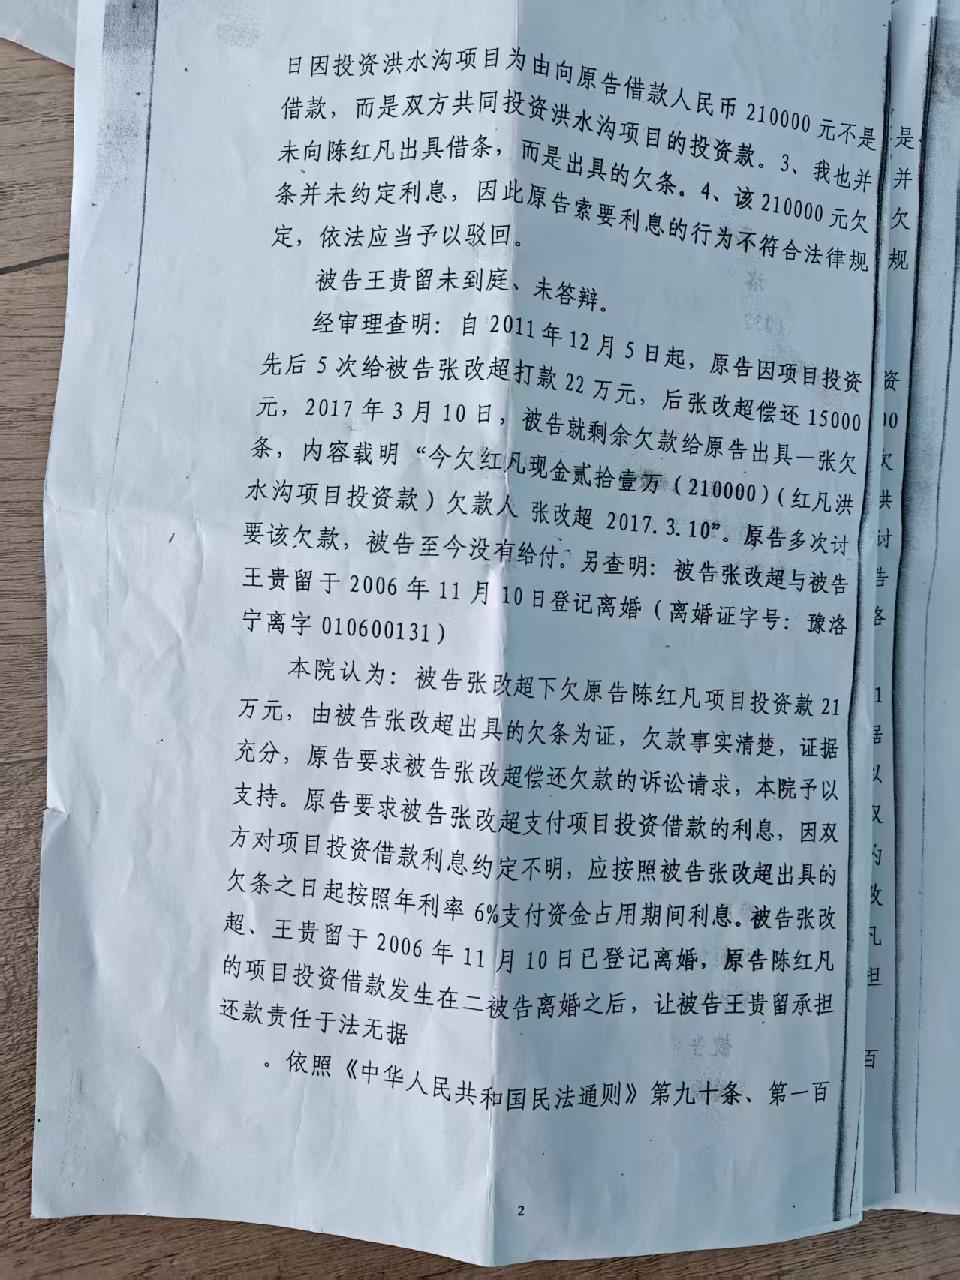 日因投资洪水沟项目为由向原告借款人民币210000元不是
借款，而是双方共同投资洪水沟项目的投资款。3、我也并
未向陈红凡出具借条，而是出具的欠条。4、该210000元欠
条并未约定利息，因此原告索要利息的行为不符合法律规
定，依法应当予以驳回。
被告王贵留未到庭、未答辩。
经审理查明：自2011年12月5日起，原告因项目投资
先后5次给被告张改超打款22万元，后张改超偿还15000
元，2017年3月10日，被告就剩余欠款给原告出具一张欠
条，内容载明“今欠红凡现金贰拾壹万（210000）（红凡洪
水沟项目投资款）欠款人 张改超 2017.3.10”。原告多次讨
要该欠款，被告至今没有给付。另查明：被告张改超与被告
王贵留于2006年11月10日登记离婚（离婚证字号：豫洛
宁离字010600131）
本院认为：被告张改超下欠原告陈红凡项目投资款21
万元，由被告张改超出具的欠条为证，欠款事实清楚，证据
充分，原告要求被告张改超偿还欠款的诉讼请求，本院予以
支持。原告要求被告张改超支付项目投资借款的利息，因双
方对项目投资借款利息约定不明，应按照被告张改超出具的
欠条之日起按照年利率6%支付资金占用期间利息。被告张改
超、王贵留于2006年11月10日已登记离婚，原告陈红凡
的项目投资借款发生在二被告离婚之后，让被告王贵留承担
还款责任于法无据
。依照《中华人民共和国民法通则》第九十条、第一百
2